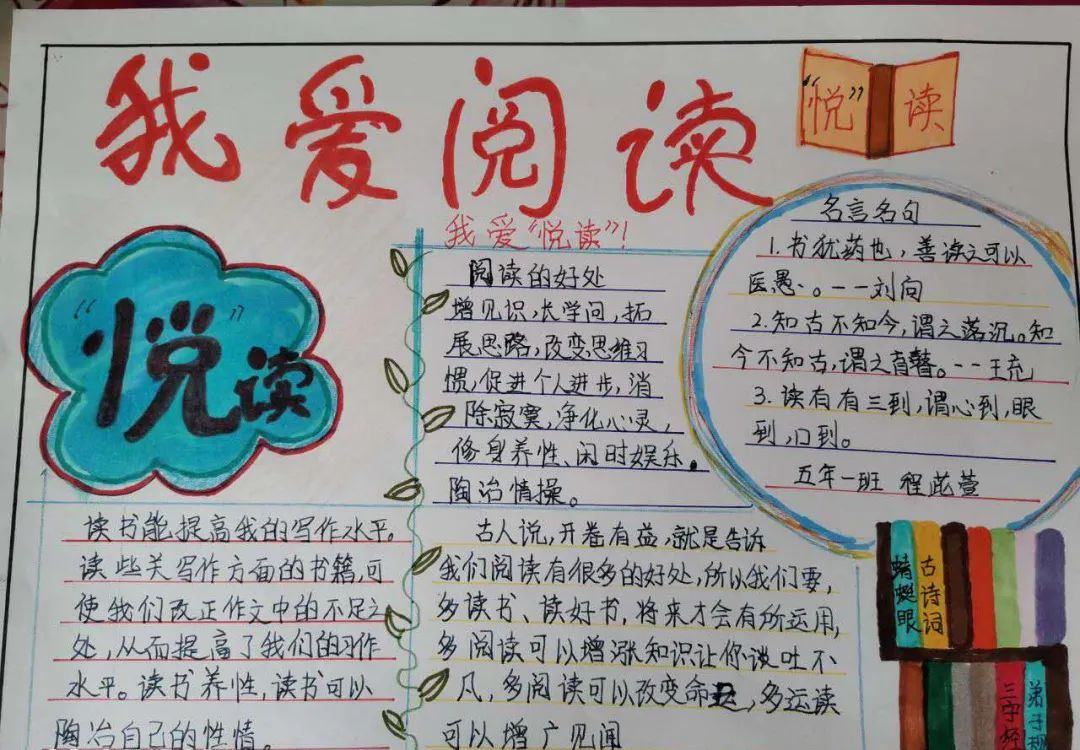 我爱阅读
“悦”读
我爱“悦读”!
“悦”读
阅读的好处
增见识,长学问,拓
展思路,改变思维习
惯,促进个人进步,消
除寂寞,净化心灵,
修身养性、闲时娱乐。
陶冶情操。
名言名句
1.书犹药也,善读之可以
医愚、。--刘向
2.知古不知今,谓之落沉。知
今不知古,谓之盲瞽。--王充
3.读有有三到,谓心到,眼
到,口到。
五年一班 程茈萱
读书能提高我的写作水平。
读些关写作方面的书籍,可
使我们改正作文中的不足之
处,从而提高了我们的习作
水平。读书养性,读书可以
陶冶自己的性情。
古人说,开卷有益,就是告诉
我们阅读有很多的好处,所以我们要,
多读书、读好书,将来才会有所运用,
多阅读可以增涨知识让你谈吐不
凡,多阅读可以改变命,多运读
可以增广见闻
蜻蜓眼
古诗词
三字经
弟子规